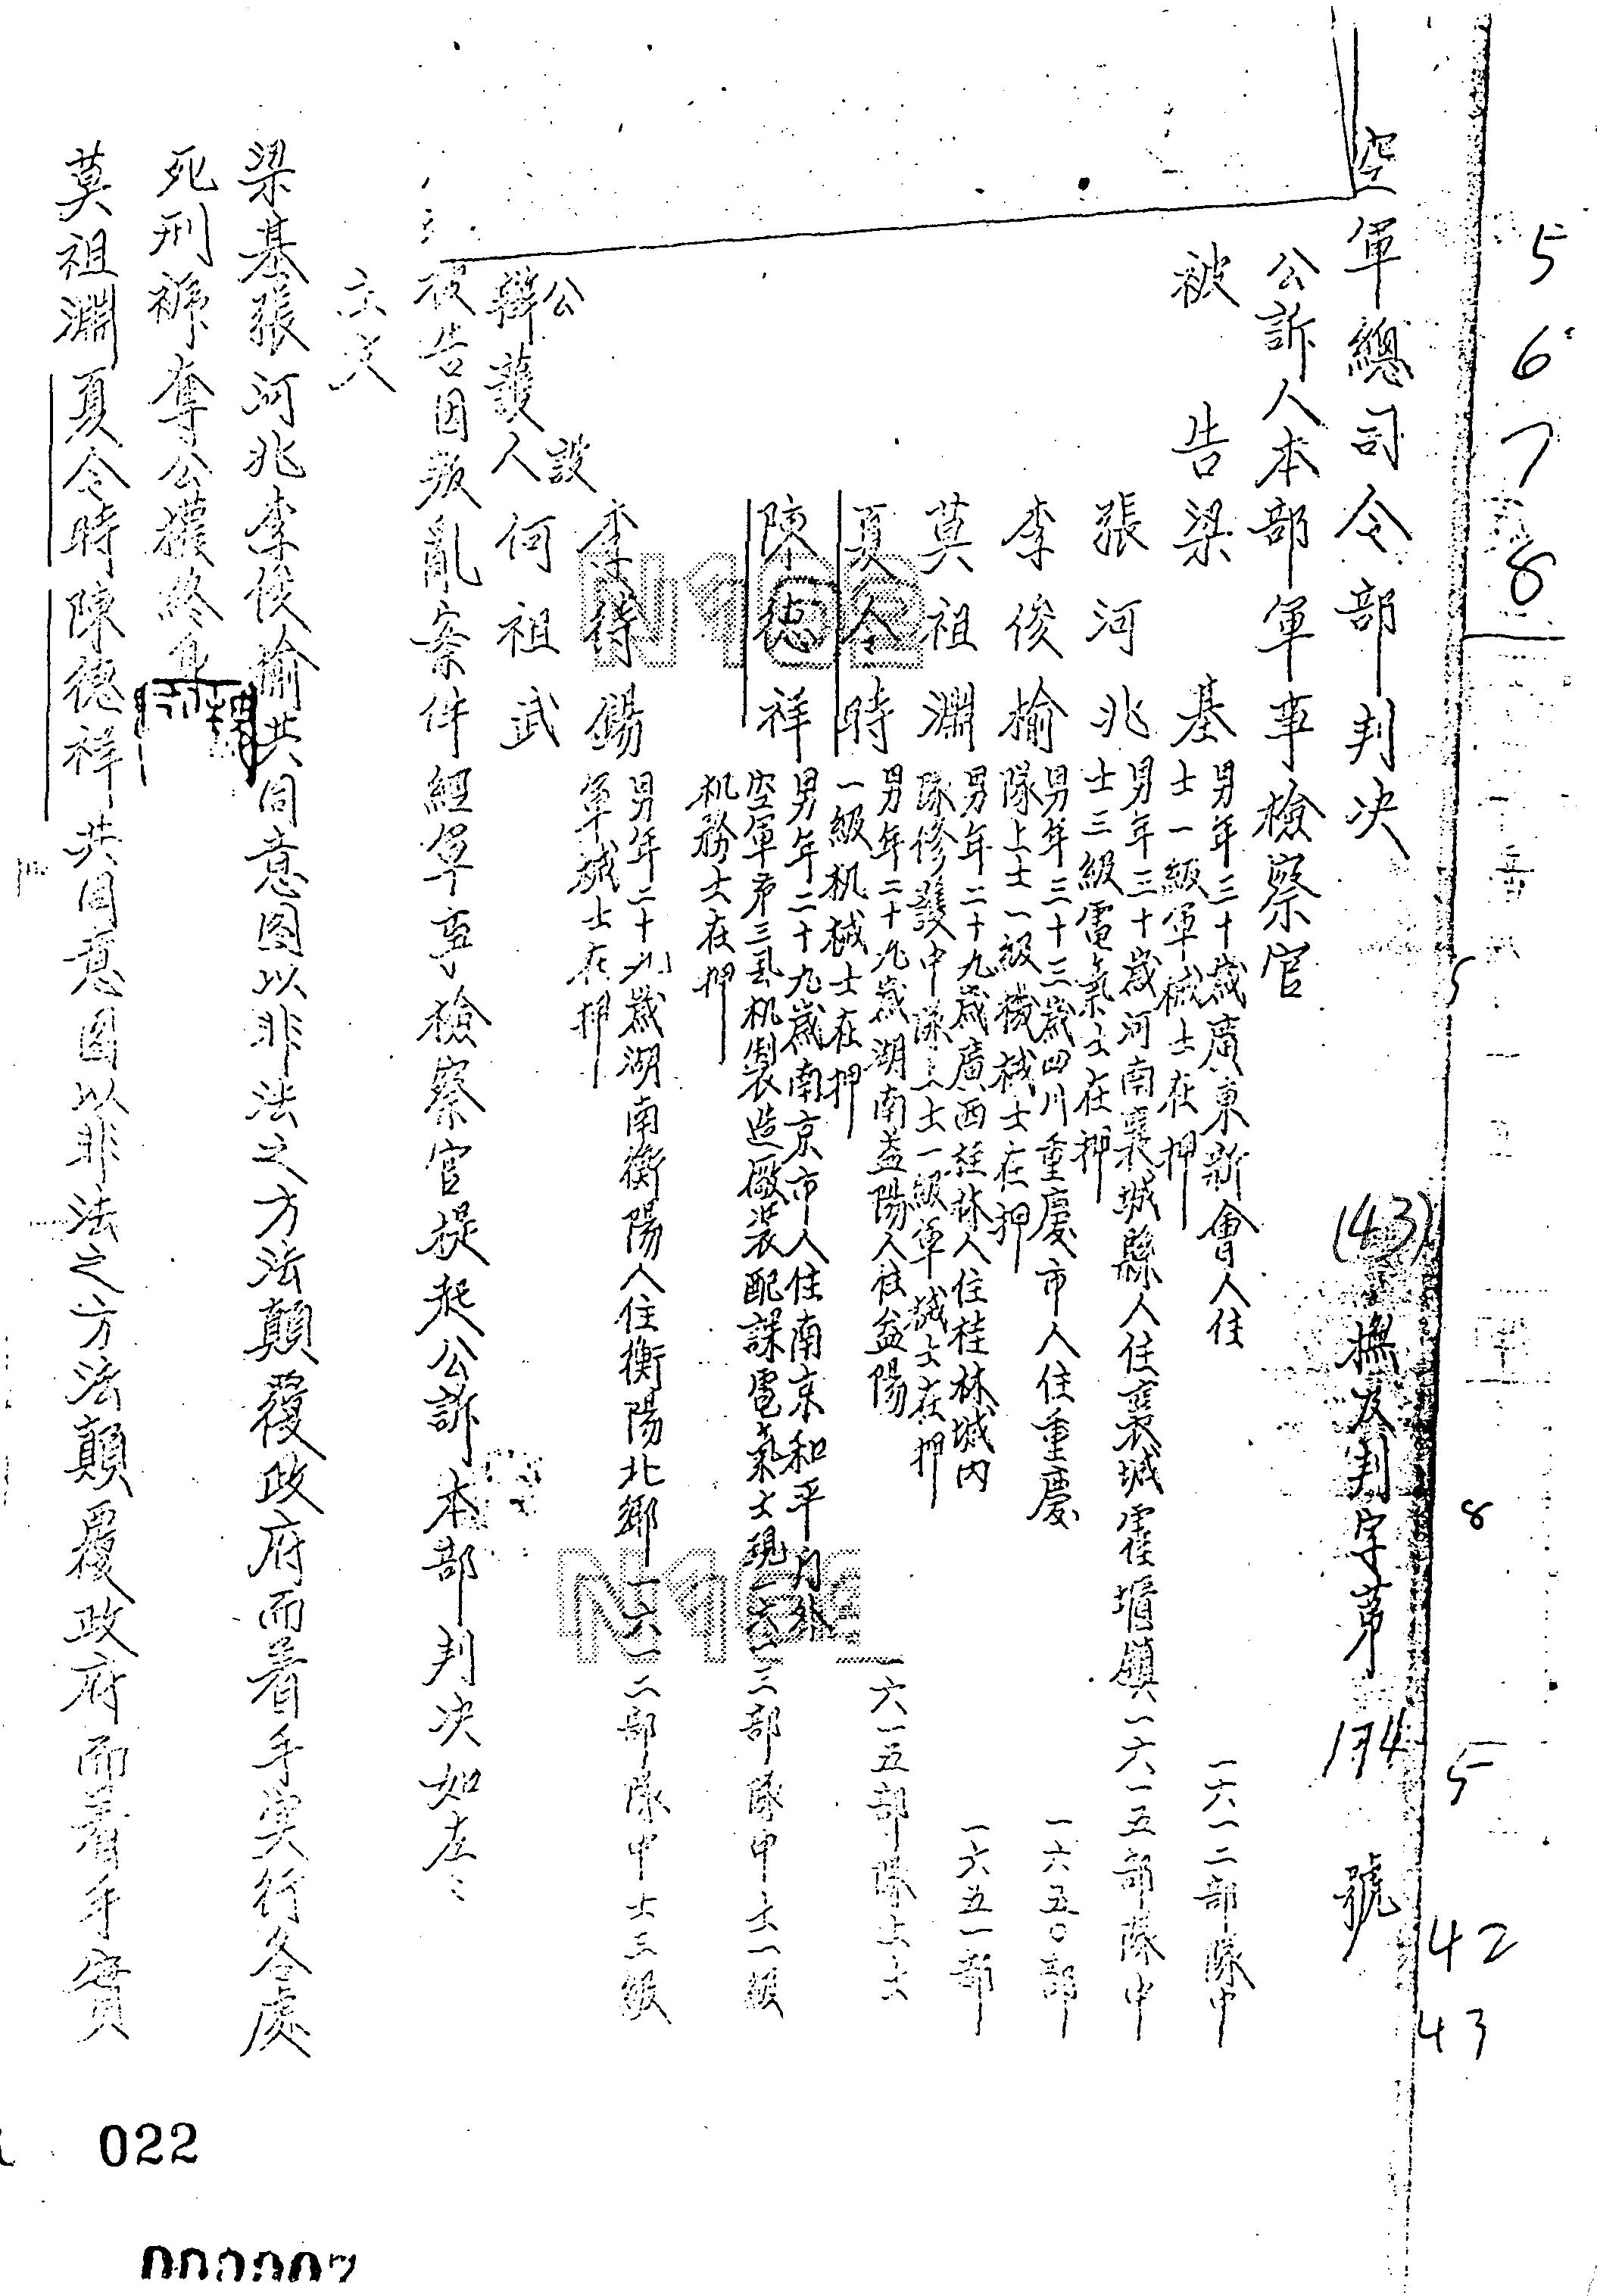 空軍總司令部判決
(43)撫友判字第134號
公訴人本部軍事檢察官
被告梁基
男年三十歲廣東新會人住
一六一二部隊中
士一級軍械士在押
張河兆
男年三十歲河南襄城縣人住襄城霍堰鎮一六一五部隊中
士三級電氣士在押
李俊榆
男年三十三歲四川重慶市人住重慶
一六五〇部
隊上士一級機械士在押
莫祖淵
男年二十九歲廣西桂林人住桂林城內
一六五一部
隊修護中隊上士一級軍械士在押
夏令時
男年二十九歲湖南益陽人住益陽
一六一五部隊上士
一級机械士在押
陳德祥
男年二十九歲南京市人住南京和平門外
空軍第三飛机製造廠裝配課電氣士現一六一三部隊中士一級
机務士在押
李待錫
男年二十九歲湖南衡陽人住衡陽北鄉一六一二部隊中士三級
軍械士在押
公設
辯護人何祖武
被告因叛亂案件經軍事檢察官提起公訴本部判決如左:
主文
梁基張河兆李俊榆共同意图以非法之方法顛覆政府而着手实行各處
死刑褫奪公權終身
莫祖淵夏令時陳德祥共同意图以非法之方法顛覆政府而着手實
5
6
7
8
5
8
5
42
43
022